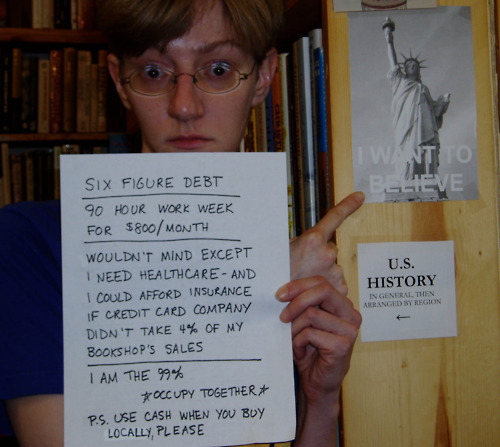 SIX FIGURE DEBT
90 HOUR WORK WEEK
FOR $800/MONTH
WOULDN'T MIND EXCEPT
I NEED HEALTHCARE - AND
I COULD AFFORD INSURANCE
IF CREDIT CARD COMPANY
DIDN'T TAKE 4% OF MY
BOOKSHOP'S SALES
I AM THE 99%
*OCCUPY TOGETHER*
P.S. USE CASH WHEN YOU BUY
LOCALLY, PLEASE
I WANT TO
BELIEVE
U.S.
HISTORY
IN GENERAL, THEN
ARRANGED BY REGION
←